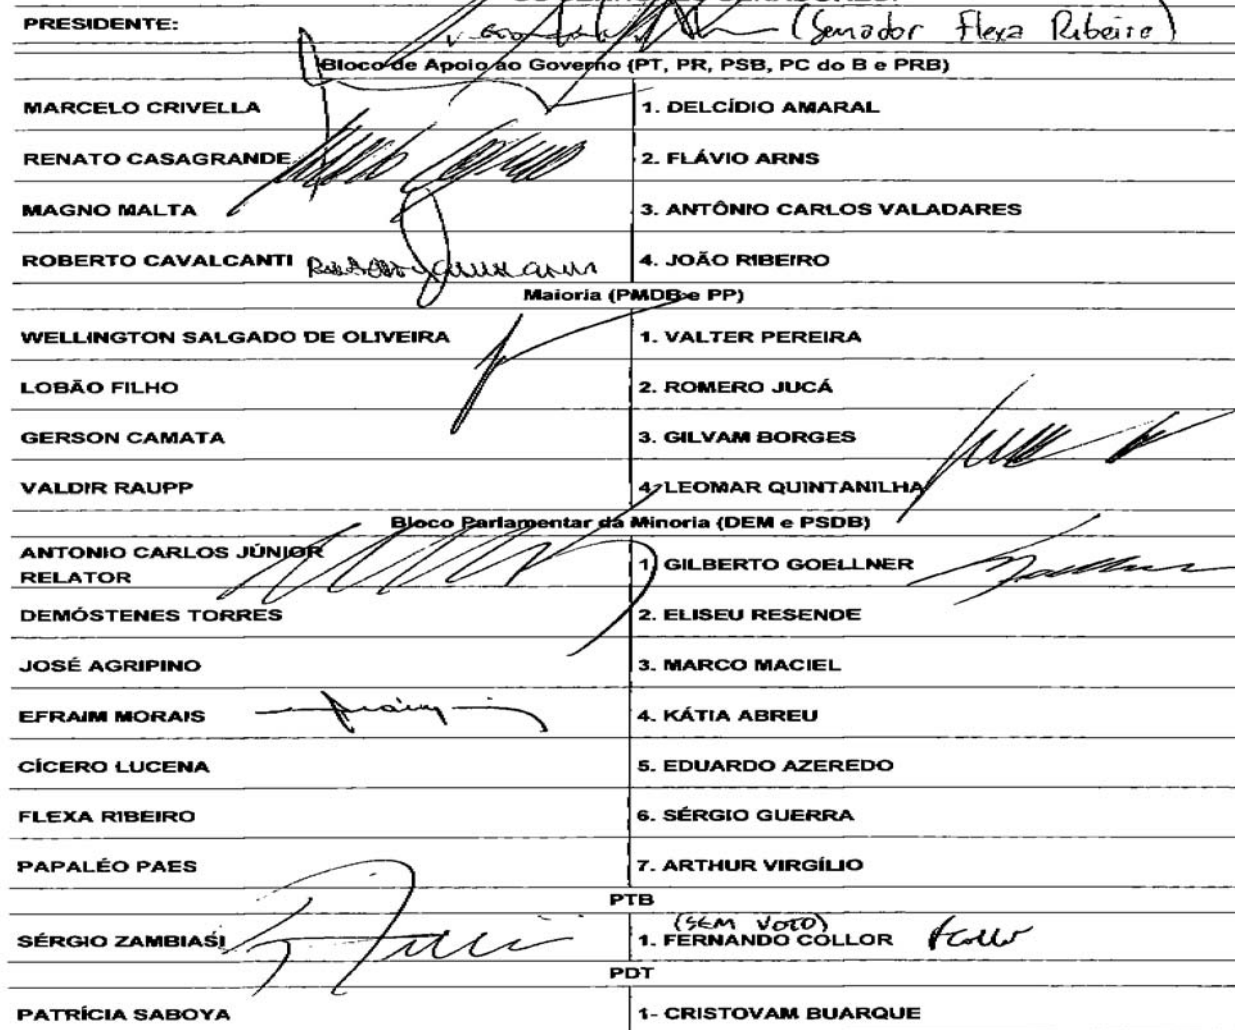 PRESIDENTE: (Senador Flexa Ribeiro)
Bloco de Apoio ao Governo (PT, PR, PSB, PC do B e PRB)
MARCELO CRIVELLA 1. DELCÍDIO AMARAL
RENATO CASAGRANDE 2. FLÁVIO ARNS
MAGNO MALTA 3. ANTÔNIO CARLOS VALADARES
ROBERTO CAVALCANTI 4. JOÃO RIBEIRO
Maioria (PMDB e PP)
WELLINGTON SALGADO DE OLIVEIRA 1. VALTER PEREIRA
LOBÃO FILHO 2. ROMERO JUCÁ
GERSON CAMATA 3. GILVAM BORGES
VALDIR RAUPP 4- LEOMAR QUINTANILHA
Bloco Parlamentar da Minoria (DEM e PSDB)
ANTONIO CARLOS JÚNIOR
RELATOR 1. GILBERTO GOELLNER
DEMÓSTENES TORRES 2. ELISEU RESENDE
JOSÉ AGRIPINO 3. MARCO MACIEL
EFRAIM MORAIS 4. KÁTIA ABREU
CÍCERO LUCENA 5. EDUARDO AZEREDO
FLEXA RIBEIRO 6. SÉRGIO GUERRA
PAPALÉO PAES 7. ARTHUR VIRGÍLIO
PTB
(SEM VOTO)
SÉRGIO ZAMBIASI 1. FERNANDO COLLOR FCollor
PDT
PATRÍCIA SABOYA 1- CRISTOVAM BUARQUE